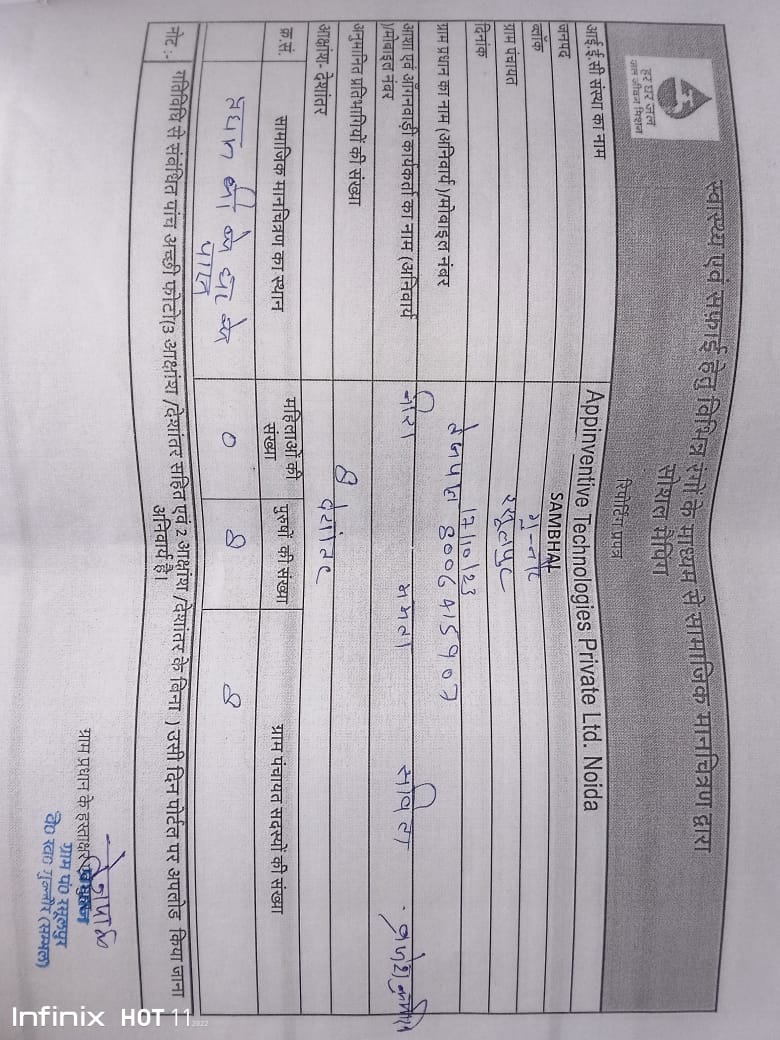 हर घर जल
जल जीवन मिशन
स्वास्थ्य एवं सफ़ाई हेतु विभिन्न रंगों के माध्यम से सामाजिक मानचित्रण द्वारा
सोशल मैपिंग
रिपोर्टिंग प्रपत्र
आई.ई.सी संस्था का नाम Appinventive Technologies Private Ltd. Noida
जनपद SAMBHAL
ब्लॉक गुन्नौर
ग्राम पंचायत रसूलपुर
दिनांक 17/10/23
ग्राम प्रधान का नाम (अनिवार्य)/मोबाइल नंबर तेजपाल 8006415907
आशा एवं आँगनवाड़ी कार्यकर्ता का नाम (अनिवार्य
)/मोबाइल नंबर नीरा ममता सविता
अनुमानित प्रतिभागियों की संख्या 8
आक्षांश- देशांतर
क्र.सं. सामाजिक मानचित्रण का स्थान महिलाओं की संख्या पुरुषों की संख्या ग्राम पंचायत सदस्यों की संख्या
प्रधान जी के घर के 0 8 8
पास
नोट :- गतिविधि से संबंधित पांच अच्छी फोटो(3 आक्षांश /देशांतर सहित एवं 2 आक्षांश /देशांतर के बिना ) उसी दिन पोर्टल पर अपलोड किया जाना
अनिवार्य है।
तेजपाल
ग्राम प्रधान के हस्ताक्षर
ग्राम पं० रसूलपुर
वि० ख० गुन्नौर (सम्भल)
Infinix HOT 11 2022